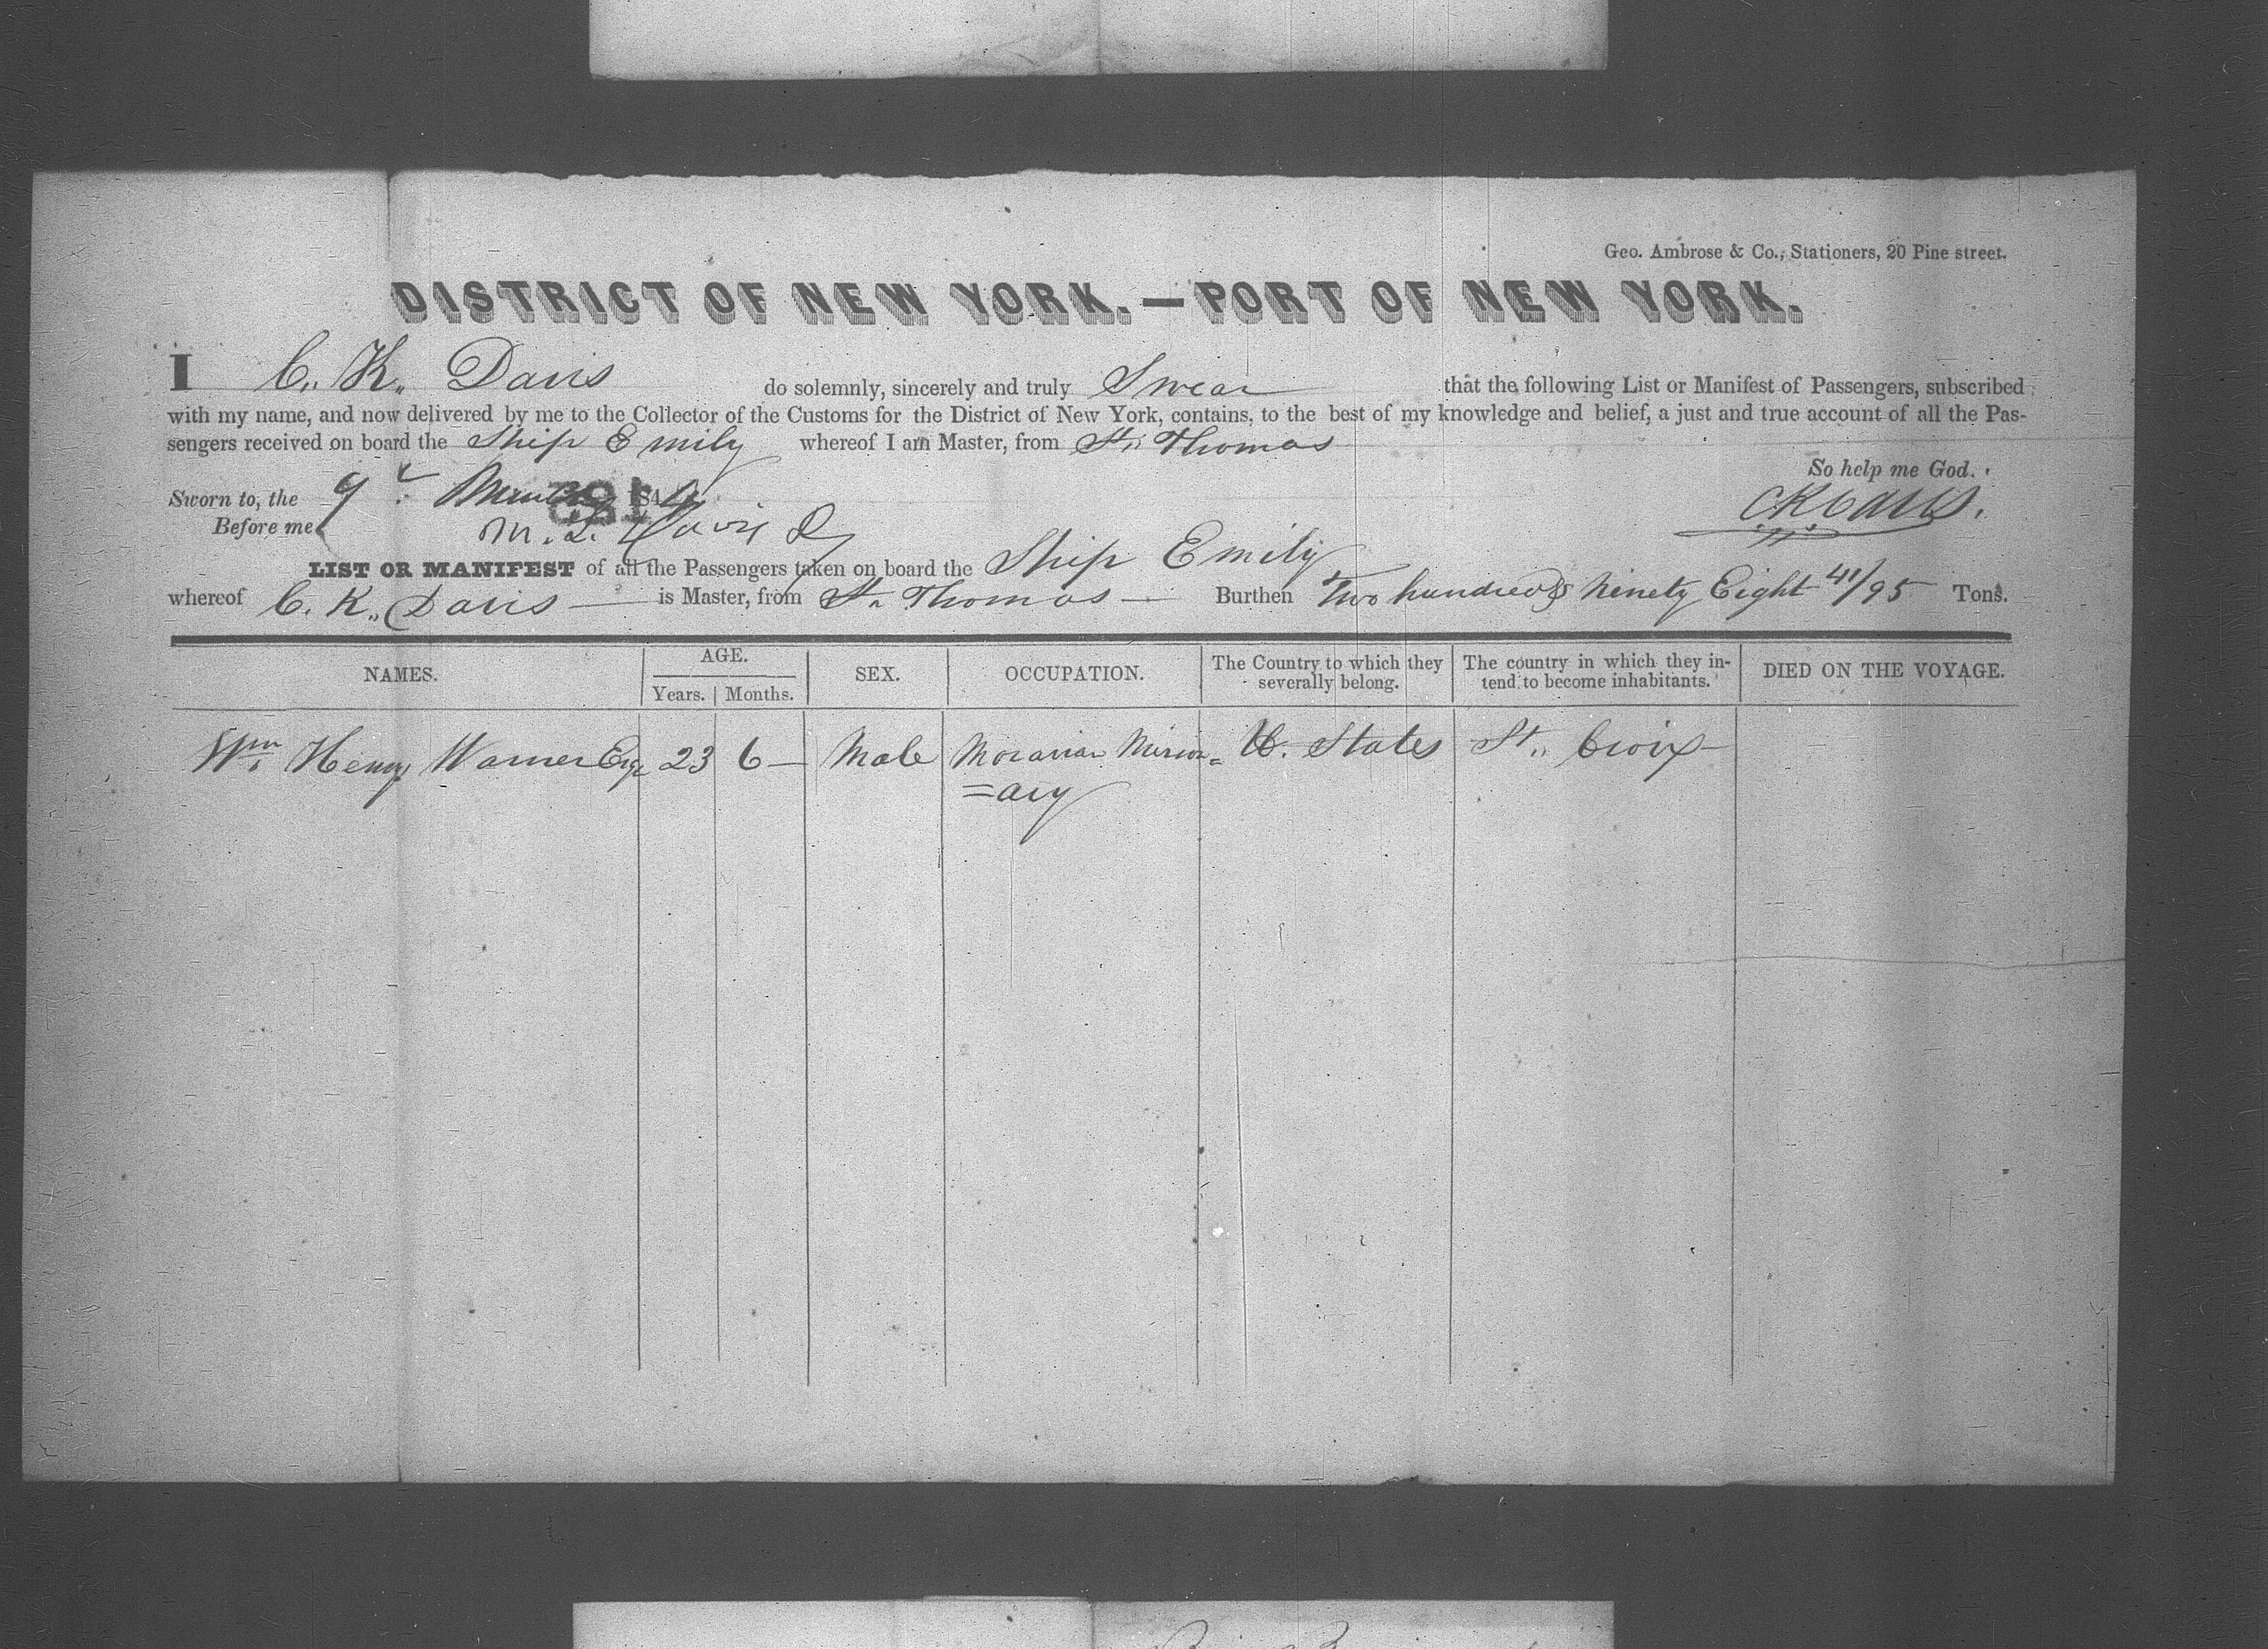 Geo. Ambrose & Co., Stationers, 20 Pine street.
DISTRICT OF NEW YORK.—PORT OF NEW YORK.
I C. K. Davis do solemnly, sincerely and truly Swear that the following List or Manifest of Passengers, subscribed
with my name, and now delivered by me to the Collector of the Customs for the District of New York, contains, to the best of my knowledge and belief, a just and true account of all the Pas-
sengers received on board the Ship Emily whereof I am Master, from St. Thomas
So help me God.
Sworn to, the 9 184
CK Davis.
Before me M. L. Davis
LIST OR MANIFEST of all the Passengers taken on board the Ship Emily
whereof C. K. Davis — is Master, from St. Thomas — Burthen Two hundred & Ninety Eight 41/95 Tons.
NAMES. AGE. SEX. OCCUPATION. The Country to which they severally belong. The country in which they in-tend to become inhabitants. DIED ON THE VOYAGE.
Years. Months.
Wm. Henry Warner Esqr 23 6 — Male Moravian Mission= U. States St. Croix —
=ary